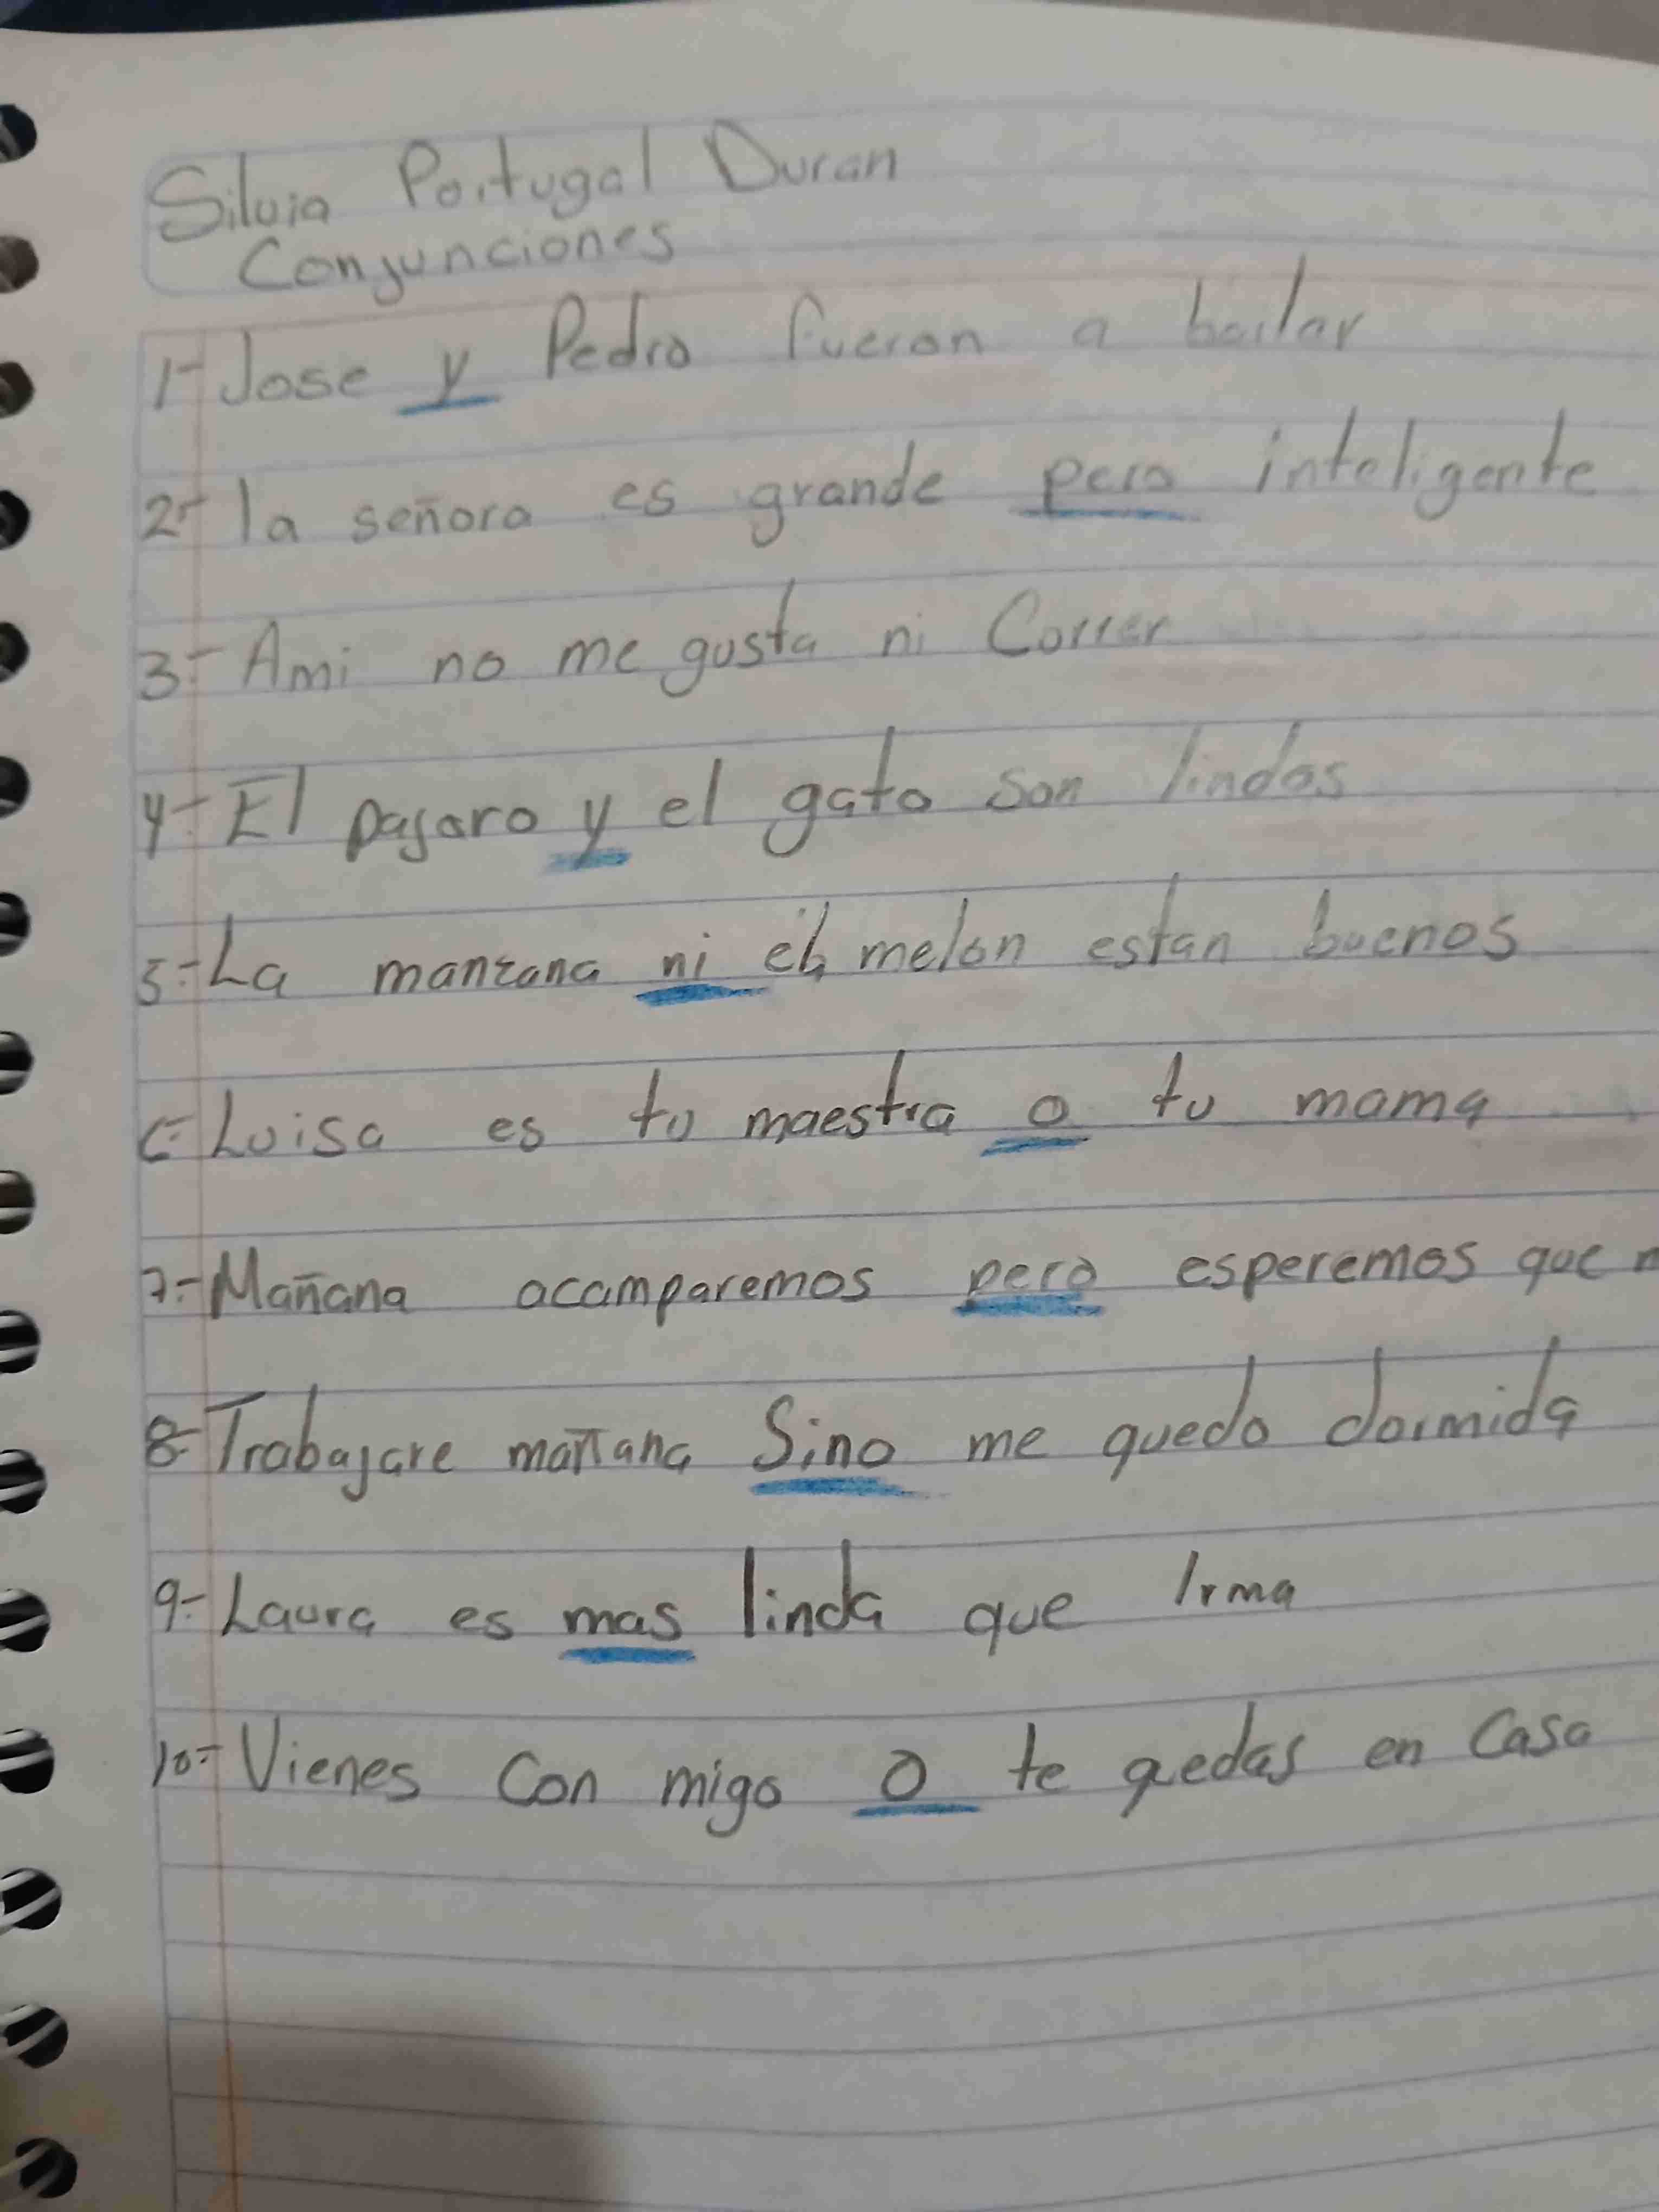 Silvia Portugal Duran
Conjunciones
1- Jose y Pedro fueron a bailar
2- la señora es grande pero inteligente
3- Ami no me gusta ni Correr
4- El pajaro y el gato son lindos
5- La manzana ni el melon estan buenos
6- Luisa es tu maestra o tu mama
7- Mañana acamparemos pero esperemos que
8- Trabajare mañana Sino me quedo dormida
9- Laura es mas linda que Irma
10- Vienes Con migo O te qedas en Casa